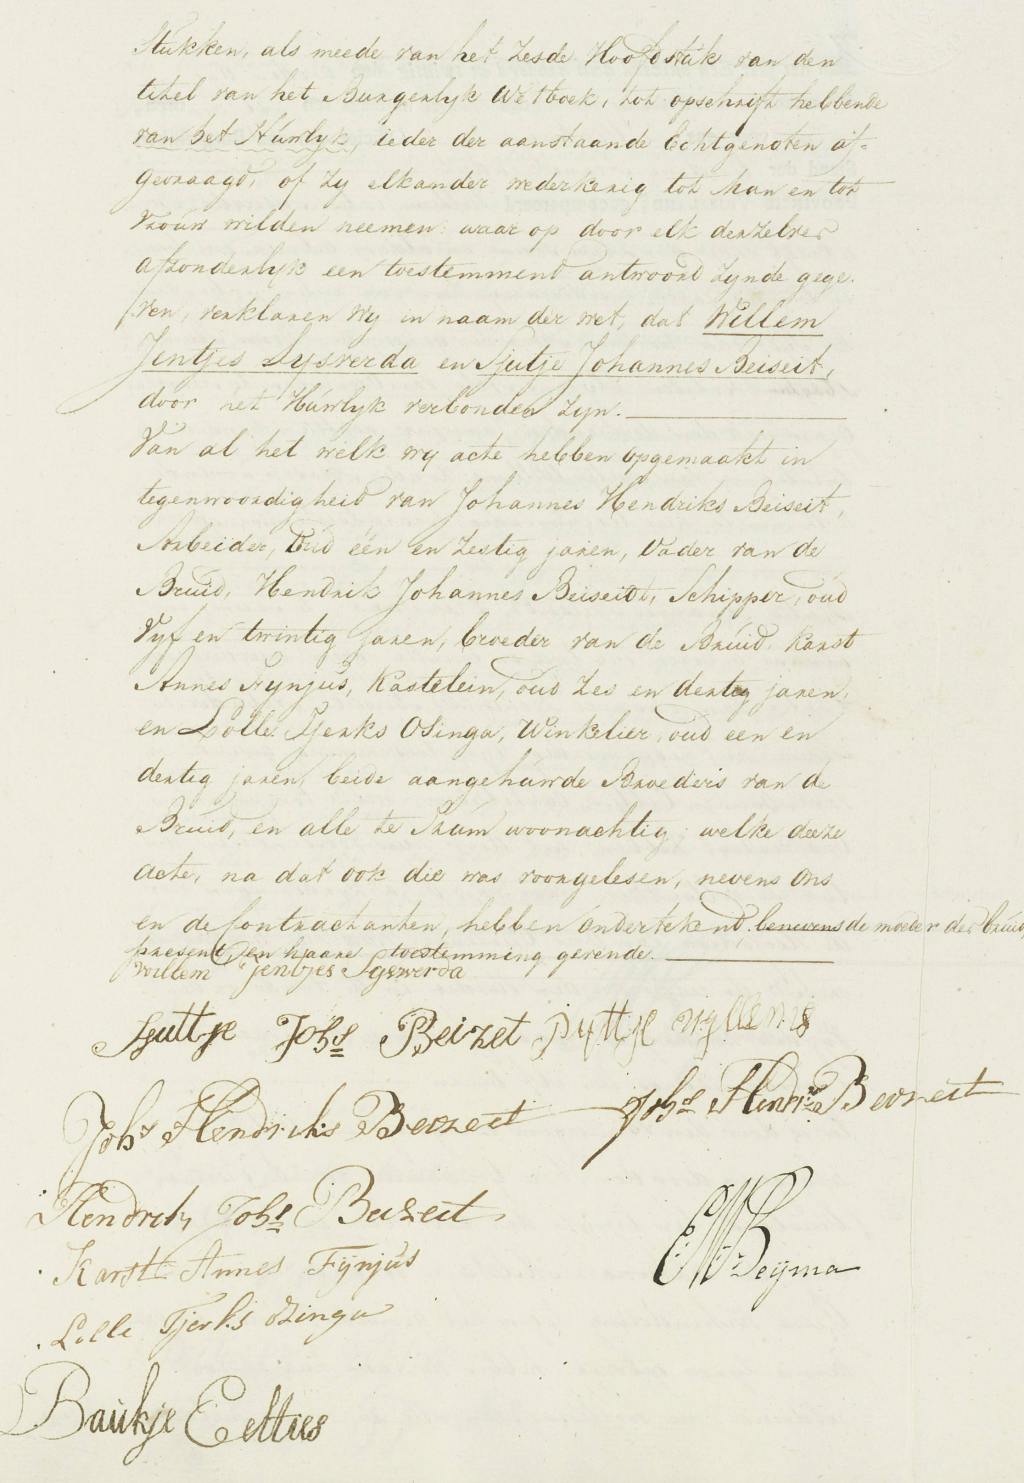 Stukken, als meede van het zesde Hoofdstúk van den
titel van het Burgerlyk Wetboek, tot opschrift hebbende
van het Húwlyk, ieder der aanstaande Echtgenoten af-
gevraagd, of zy elkander wederkerig tot man en tot
Vrouw wilden neemen: waar op door elk derzelver
afzonderlyk een toestemmend antwoord zynde gege-
ven, verklaren wy in naam der wet, dat Willem
Jentjes Sysverda en Sjutje Johannes Beiseit,
door het Húwlyk verbonden zyn.
Van al het welk wy acte hebben opgemaakt in
tegenwoordigheid van Johannes Hendriks Beiseit,
Arbeider, oud één en zestig jaren, Vader van de
Bruid, Hendrik Johannes Beiseit, Schipper, oud
Vyf en twintig jaren, broeder van de Brúid, Karst
Annes Fynjus, Kastelein, oud zes en dertig jaren,
en Lolle Tjerks Osinga, Winkelier, oud een en
dertig jaren, beide aangehúwde Broeders van de
Brúid, en alle te woonachtig; welke deeze
acte, na dat ook die was voorgelesen, nevens ons
en de Contractanten, hebben ondertekend, benevens de moeder der bruid
present en haare toestemming gevende.
Willem jentjes Sysewerda
Sjuttje Johs Beizet pyttje wyllems
Johs Hendriks Beozeet Johs Hendriks Beozeet
Hendrik Johs Beizeit
Karst Annes Fÿnjús E: W: Bogma
Lolle Tjerks Ozinga
Baukje Eelties